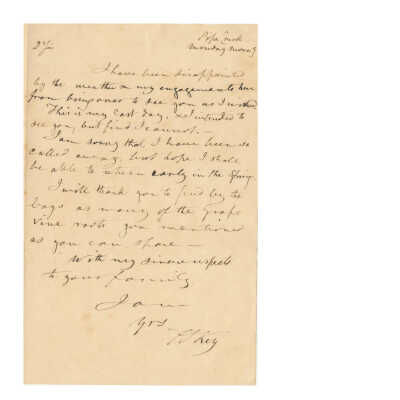 Pipe Creek
Monday morng
D Sir
I have been disappointed
by the weather & my engagements here
from being over to see you as I wished
This is my last day, & I intended to
see you, but find I cannot. —
I am sorry that I have been so
called away, but hope I shall
be able to return early in the Spring.
I will thank you to send by the
bags as many of the grape
vine roots you mentioned
as you can spare —
With my sincere respects
to your family
I am
Yrs
F S Key